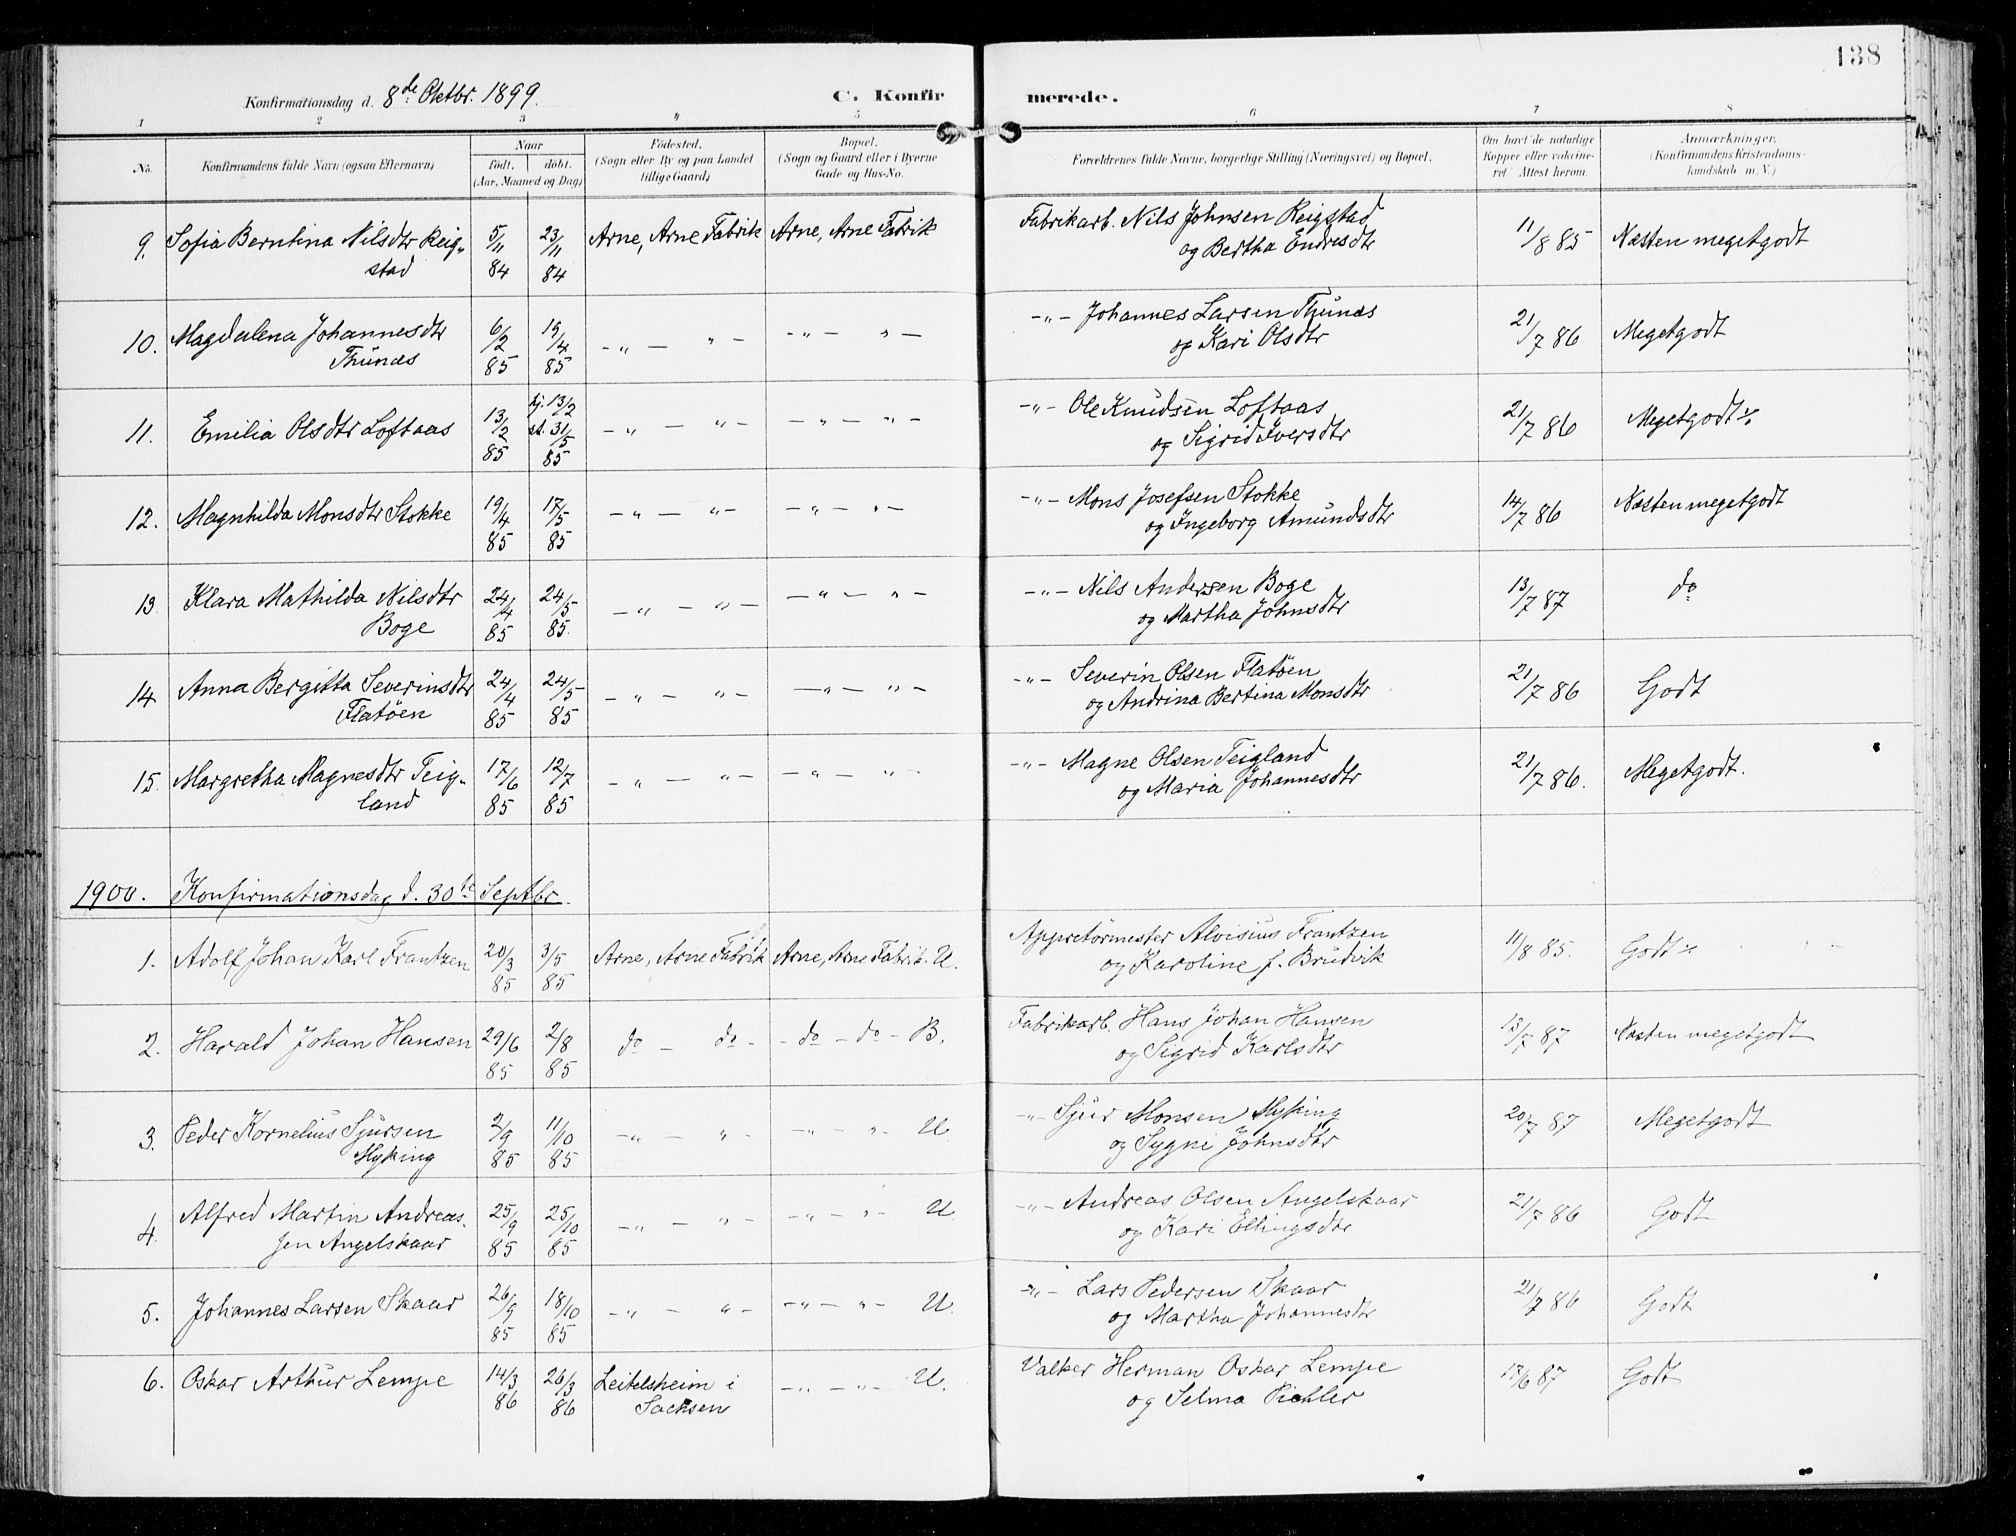 138
Konfirmationsdag d. 8de Oktbr. 1899.
C. Konfirmerede.
1 2 3 4 5 6 7 8
No. Konfirmandens fulde Navn (ogsaa Efternavn) Naar født. døbt. (Aar, Maaned og Dag) Fødested. (Sogn eller By og paa Landet tillige Gaard) Bopæl. (Sogn og Gaard eller i Byerne Gade og Hus-No. Forældrenes fulde Navne, borgerlige Stilling (Næringsvei) og Bopæl. Om havt de naturlige Kopper eller vakcineret? Attest herom. Anmærkninger, (Konfirmandens Kristendomskundskab m. V.)
9. Sofia Berntina Nilsdtr Reigstad 5/11 84 23/11 84 Arne, Arne Fabrik Arne, Arne Fabrik Fabrikarb. Nils Johnsen Reigstad og Bertha Endresdtr 11/8 85 Næsten megetgodt
10. Magdalena Johannesdtr Thunæs 6/2 85 19/4 85 -"- "- -"- "- -"- Johannes Larsen Thunæs og Kari Olsdtr 21/7 86 Megetgodt
11. Emilia Olsdtr Loftaas 13/2 85 hj. 13/2 st. 31/5 85 -"- "- -"- "- -"- Ole Knudsen Loftaas og Sigrid Iversdtr 21/7 86 Megetgodt
12. Magnhilda Monsdtr Stokke 19/4 85 17/5 85 -"- "- -"- "- -"- Mons Josefsen Stokke og Ingeborg Amundsdtr 14/7 86 Næsten megetgodt
13. Klara Mathilda Nilsdtr Boge 24/4 85 24/5 85. -"- "- -"- "- -"- Nils Andersen Boge og Martha Johnsdtr 13/7 87 do
14. Anna Bergitta Severinsdtr Flatøen 24/4 85 24/5 85 -"- "- -"- "- -"- Severin Olsen Flatøen og Andrina Bertina Monsdtr 21/7 86 Godt
15. Margretha Magnesdtr Teigland 17/6 85 12/7 85 -"- "- -"- "- -"- Magne Olsen Teigland og Maria Johannesdtr 21/7 86. Megetgodt.
1900. Konfirmationsdag d. 30te Septbr.
1. Adolf Johan Karl Frantzen 20/3 85 3/5 85 Arne, Arne Fabrik Arne, Arne Fabrik. U. Appretørmester Aloisius Frantzen og Karoline f. Brudvik 11/8 85. Godt
2. Harald Johan Hansen 29/6 85 2/8 85 do - do - - do - do - B. Fabrikarb. Hans Johan Hansen og Sigrid Karlsdtr 13/7 87 Næsten megetgodt
3. Peder Kornelius Sjursen Myking 2/9 85 11/10 85 -"- "- -"- "- U. -"- Sjur Monsen Myking og Sygni Johnsdtr 20/7 87 Megetgodt
4. Alfred Martin Andreassen Angelskaar 25/9 85 25/10 85 -"- "- -"- "- U. -"- Andreas Olsen Angelskaar og Kari Ellingsdtr 21/7 86 Godt
5. Johannes Larsen Skaar 26/9 85 18/10 85 -"- "- -"- "- U. -"- Lars Pedersen Skaar og Martha Johannesdtr 21/7 86 Godt
6. Oskar Arthur Lempe 14/3 86 26/3 86 Leitelsheim i Sachsen -"- "- U. Valker Herman Oskar Lempe og Selma Pichler 17/6 87 Godt